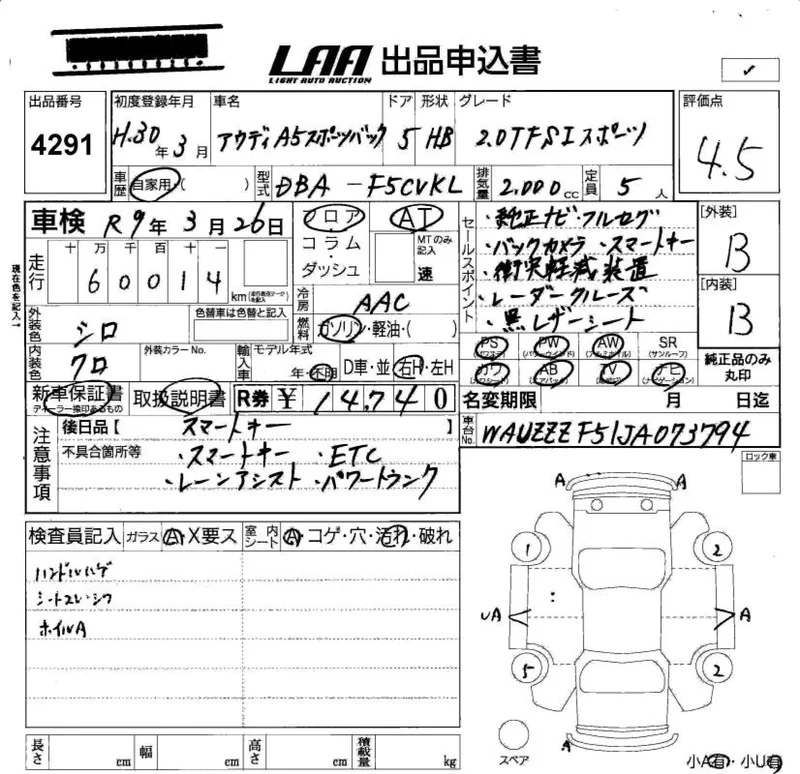 LAA 出品申込書
LIGHT AUTO AUCTION
✓
出品番号 初度登録年月 車名 ドア 形状 グレード 評価点
4291 H.30年3月 アウディA5スポーツバック 5 HB 2.0TFSIスポーツ 4.5
車歴 自家用・( ) 型式 DBA-F5CVKL 排気量 2.000cc 定員 5人
車検 R9年3月26日 フロア・コラム・ダッシュ AT MTのみ記入 速
セールスポイント
・純正ナビ・フルセグ
・バックカメラ・スマートキー
・衝突軽減装置
・レーダークルーズ
・黒レザーシート
[外装] B
[内装] B
現在色を記入→
走行 十万千百十一
60014 km
冷房 AAC
外装色 シロ 色替車は色替と記入 燃料 ガソリン・軽油・( )
内装色 クロ 外装カラーNo. 輸入車 モデル年式 年・不明 D車・並 右H・左H
PS (パワステ) PW (パワーウインド) AW (アルミホイル) SR (サンルーフ)
カワ (カワシート) AB (エアバック) TV ナビ (ナビゲーション)
純正品のみ丸印
新車保証書 ディーラー捺印あるもの 取扱説明書 R券 ¥ 14,740 名変期限 月 日迄
注意事項 後日品【 スマートキー 】
車台No. WAUZZZF51JA073794
不具合箇所等 ・スマートキー ・ETC
・レーンアシスト・パワートランク
ロック車
検査員記入 ガラス A・X要ス 室内シート A・コゲ・穴・汚れ・破れ
ハンドルハゲ
シートスレ・シワ
ホイルA
A A
1 2
UA A
5 2
A
スペア
小A有・小U有
長さ cm 幅 cm 高さ cm 積載量 kg